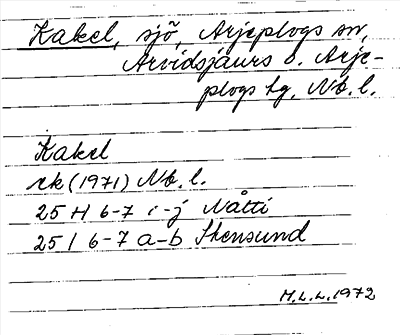 Kakel, sjö, Arjeplogs sn,
Arvidsjaurs o. Arje-
plogs tg, Nb. l.
Kakel
rk (1971) Nb. l.
25 H 6-7 i-j Nåtti
25 I 6-7 a-b Stensund
H.L.L. 1972